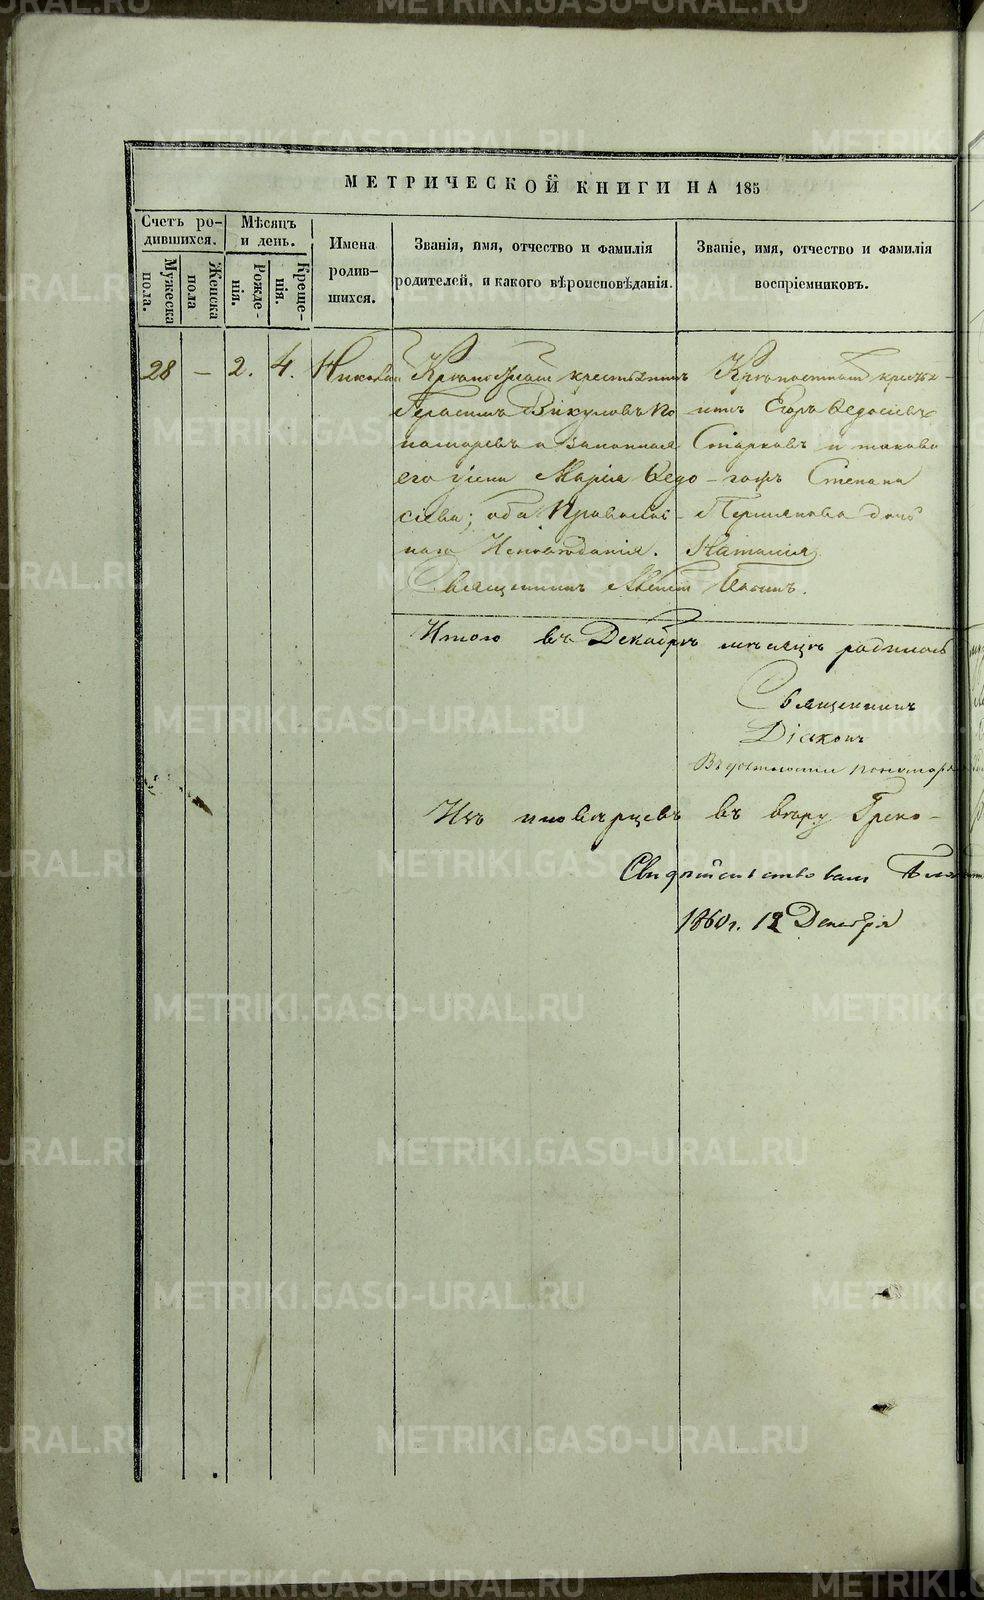 МЕТРИЧЕСКОЙ КНИГИ НА 185
Счетъ ро-
дившихся.
Мужеска
пола.
Женска
пола
Мѣсяцъ
и день.
Рожде-
нія.
Креще-
нія.
Имена
родив-
шихся.
Званія, имя, отчество и фамилія
родителей, и какого вѣроисповѣданія.
Званіе, имя, отчество и фамилія
воспріемниковъ.
28 – 2. 4. Николай
Крѣпостной крестьянинъ
Герасимъ Викуловъ По
номаревъ и законная
его жена Марія Ѳедо-
сіева; оба Православ-
наго Исповѣданія.
Крѣпостной кресть-
нинъ Егоръ Ѳедосіевъ
Старковъ и таково
гожъ Степана
Пермякова дочь
Наталія.
Священникъ
Итого въ Декабрѣ мѣсяцѣ родилось
Священникъ
Діаконъ
Въ должности пономаря
Изъ иновѣрцевъ въ вѣру Греко-
Свидѣтельствовалъ
1860 г. 12 Декабря
METRIKI.GASO-URAL.RU